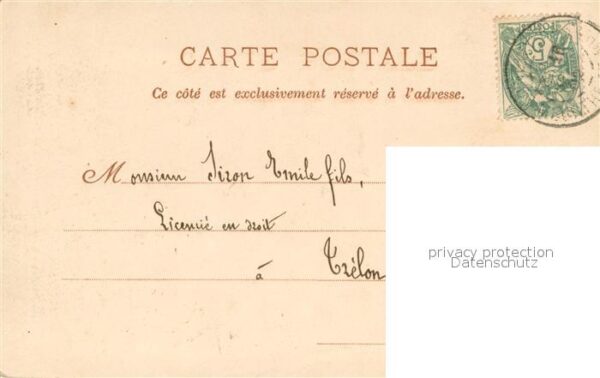 CARTE POSTALE
Ce côté est exclusivement réservé à l'adresse.
Monsieur Siron Emile fils,
Licencié en droit
à Trélon
privacy protection
Datenschutz